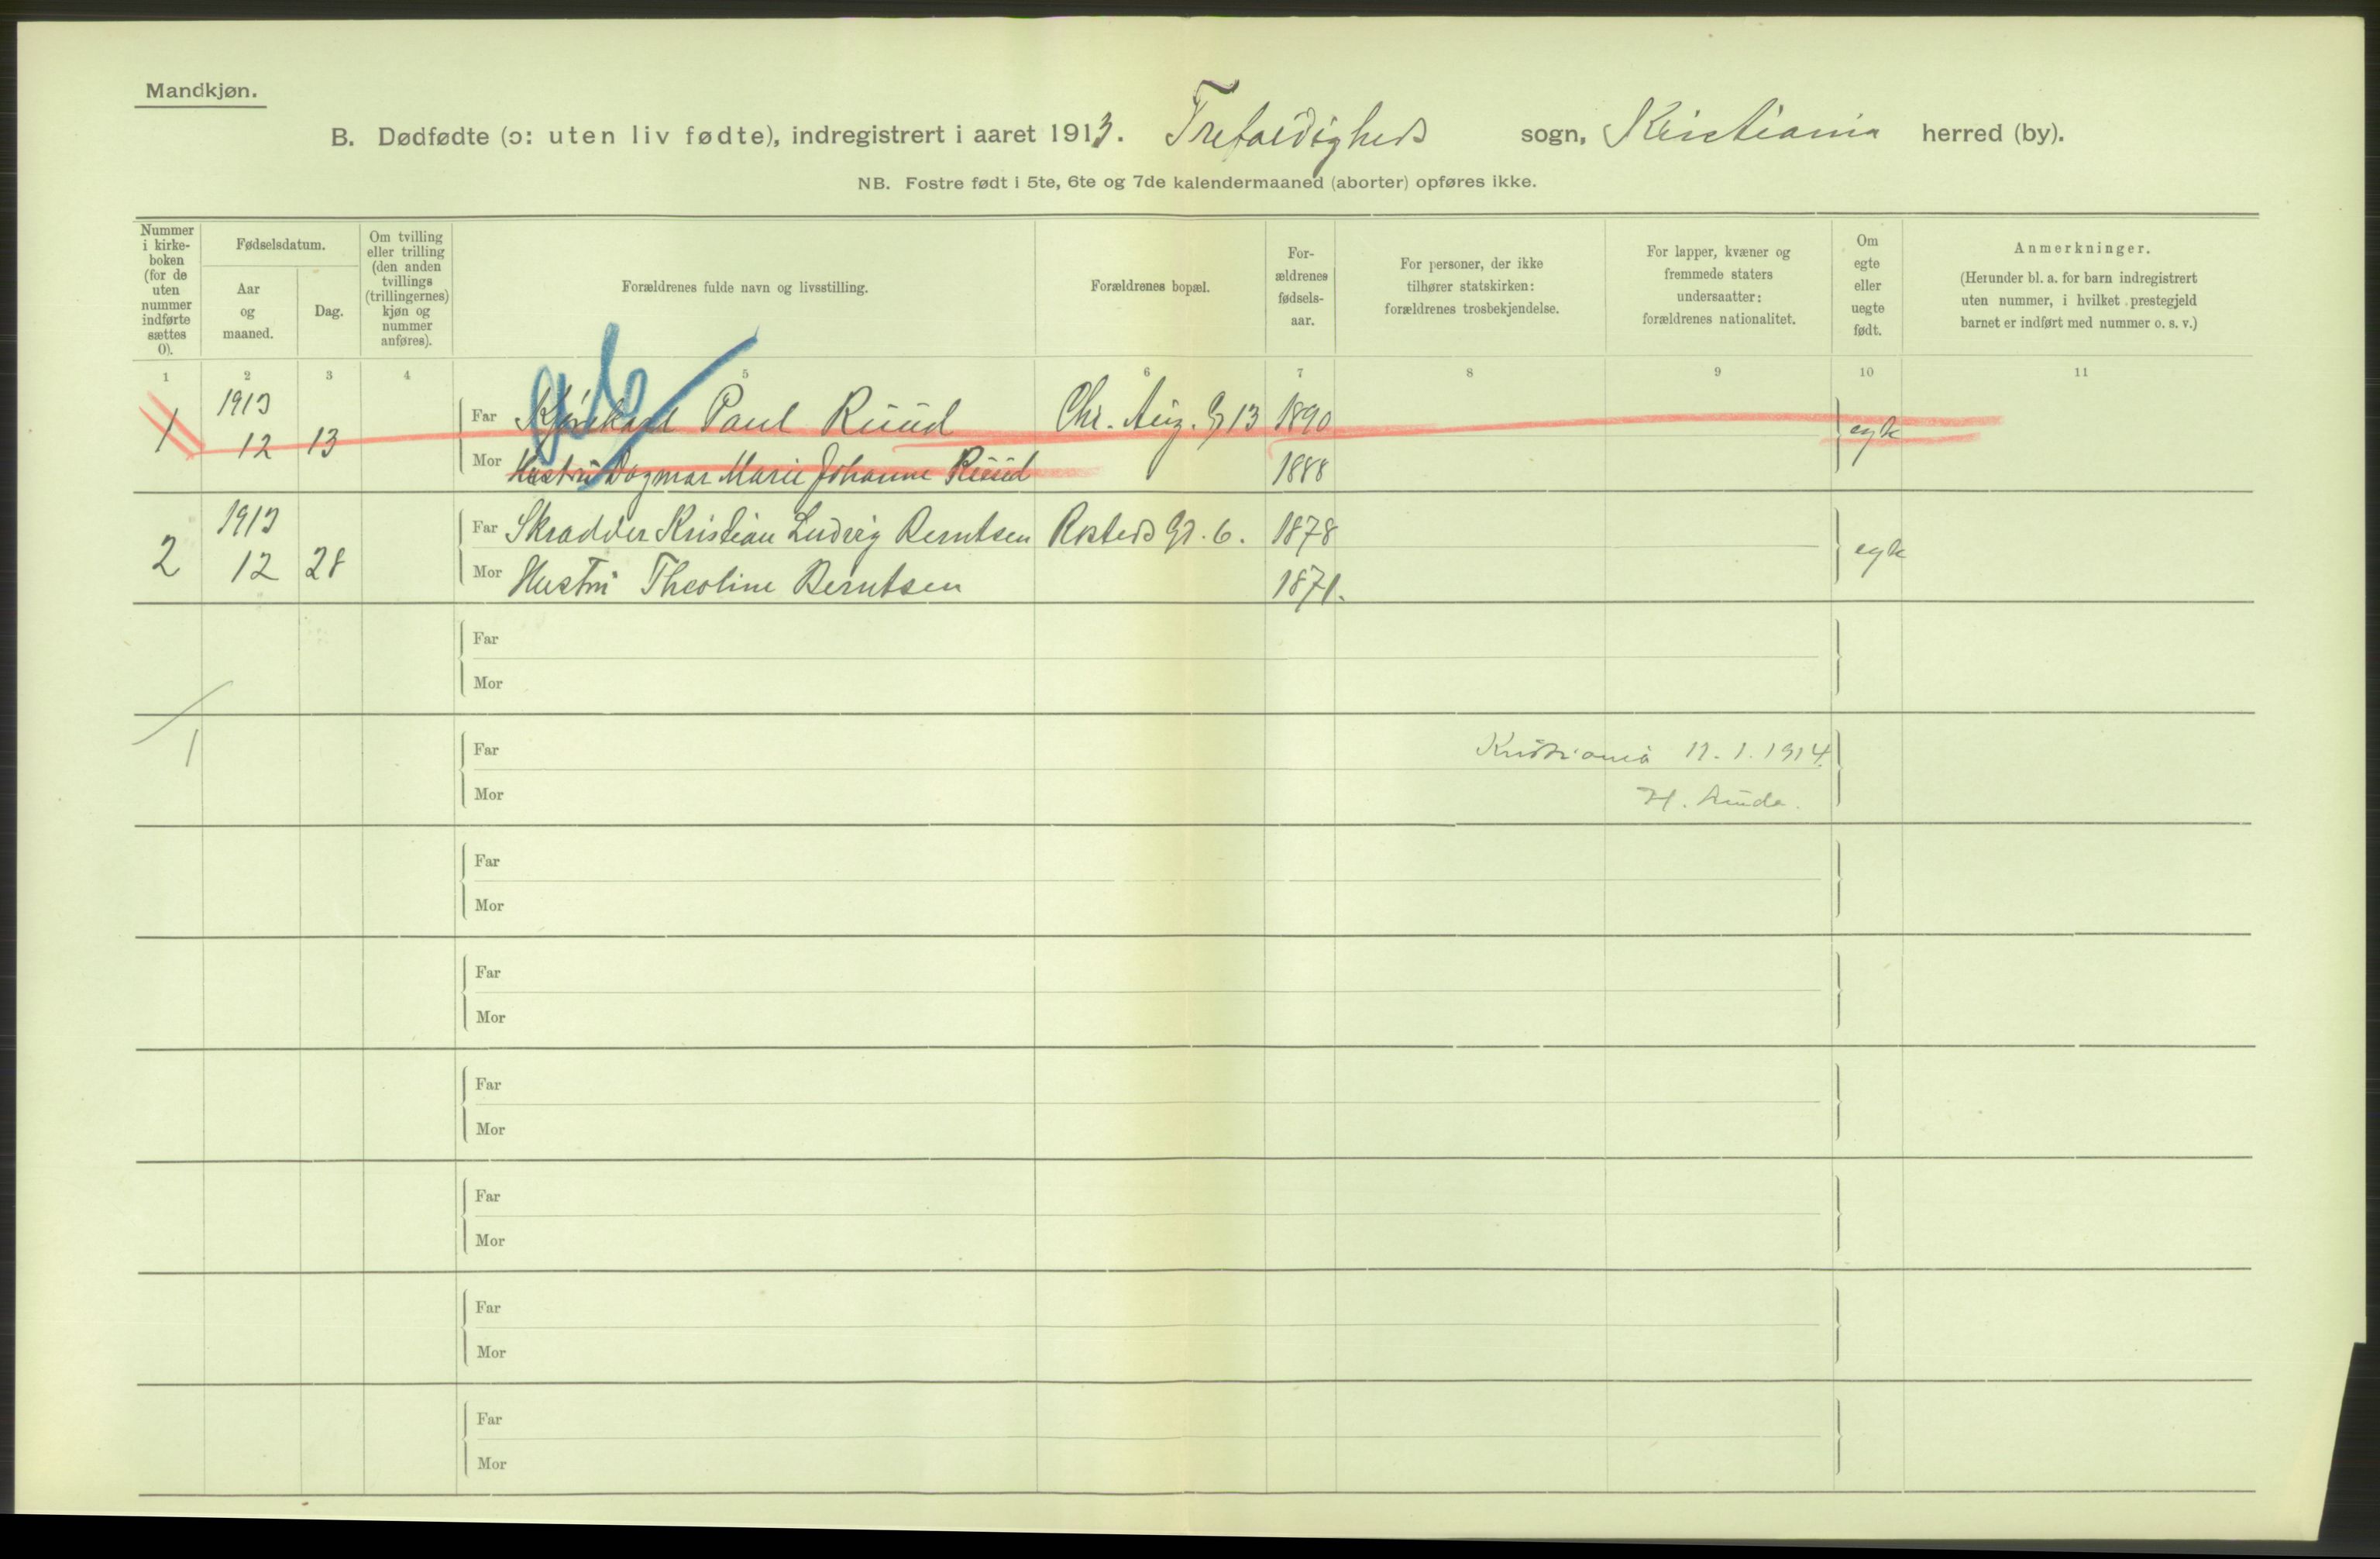 Mandkjøn.
B. Dødfødte (ɔ: uten liv fødte), indregistrert i aaret 1913. Trefoldigheds sogn, Kristiania herred (by).
NB. Fostre født i 5te, 6te og 7de kalendermaaned (aborter) opføres ikke.
Nummer
i kirke-
boken
(for de
uten
nummer
indførte
sættes
0).
Fødselsdatum.
Aar
og
maaned.
Dag.
Om tvilling
eller trilling
(den anden
tvillings
(trillingernes)
kjøn og
nummer
anføres).
Forældrenes fulde navn og livsstilling.
Forældrenes bopæl.
For-
ældrenes
fødsels-
aar.
For personer, der ikke
tilhører statskirken:
forældrenes trosbekjendelse.
For lapper, kvæner og
fremmede staters
undersaatter:
forældrenes nationalitet.
Om
egte
eller
uegte
født.
Anmerkninger.
(Herunder bl. a. for barn indregistrert
uten nummer, i hvilket prestegjeld
barnet er indført med nummer o. s. v.)
1 2 3 4 5 6 7 8 9 10 11
1913
1 12 13 Far Kjørekarl Paul Ruud Chr. Aug. G 13 1890 egte
Mor Hustru Dagmar Marie Johanne Ruud 1888
1913
2 12 28 Far Skrædder Kristian Ludvig Berntsen Rosteds Gd. 6. 1878 egte
Mor Hustru Theoline Berntsen 1871.
Far
Mor
1
Far Kristiania 11. 1. 1914.
Mor
Far
Mor
Far
Mor
Far
Mor
Far
Mor
Far
Mor
Far
Mor